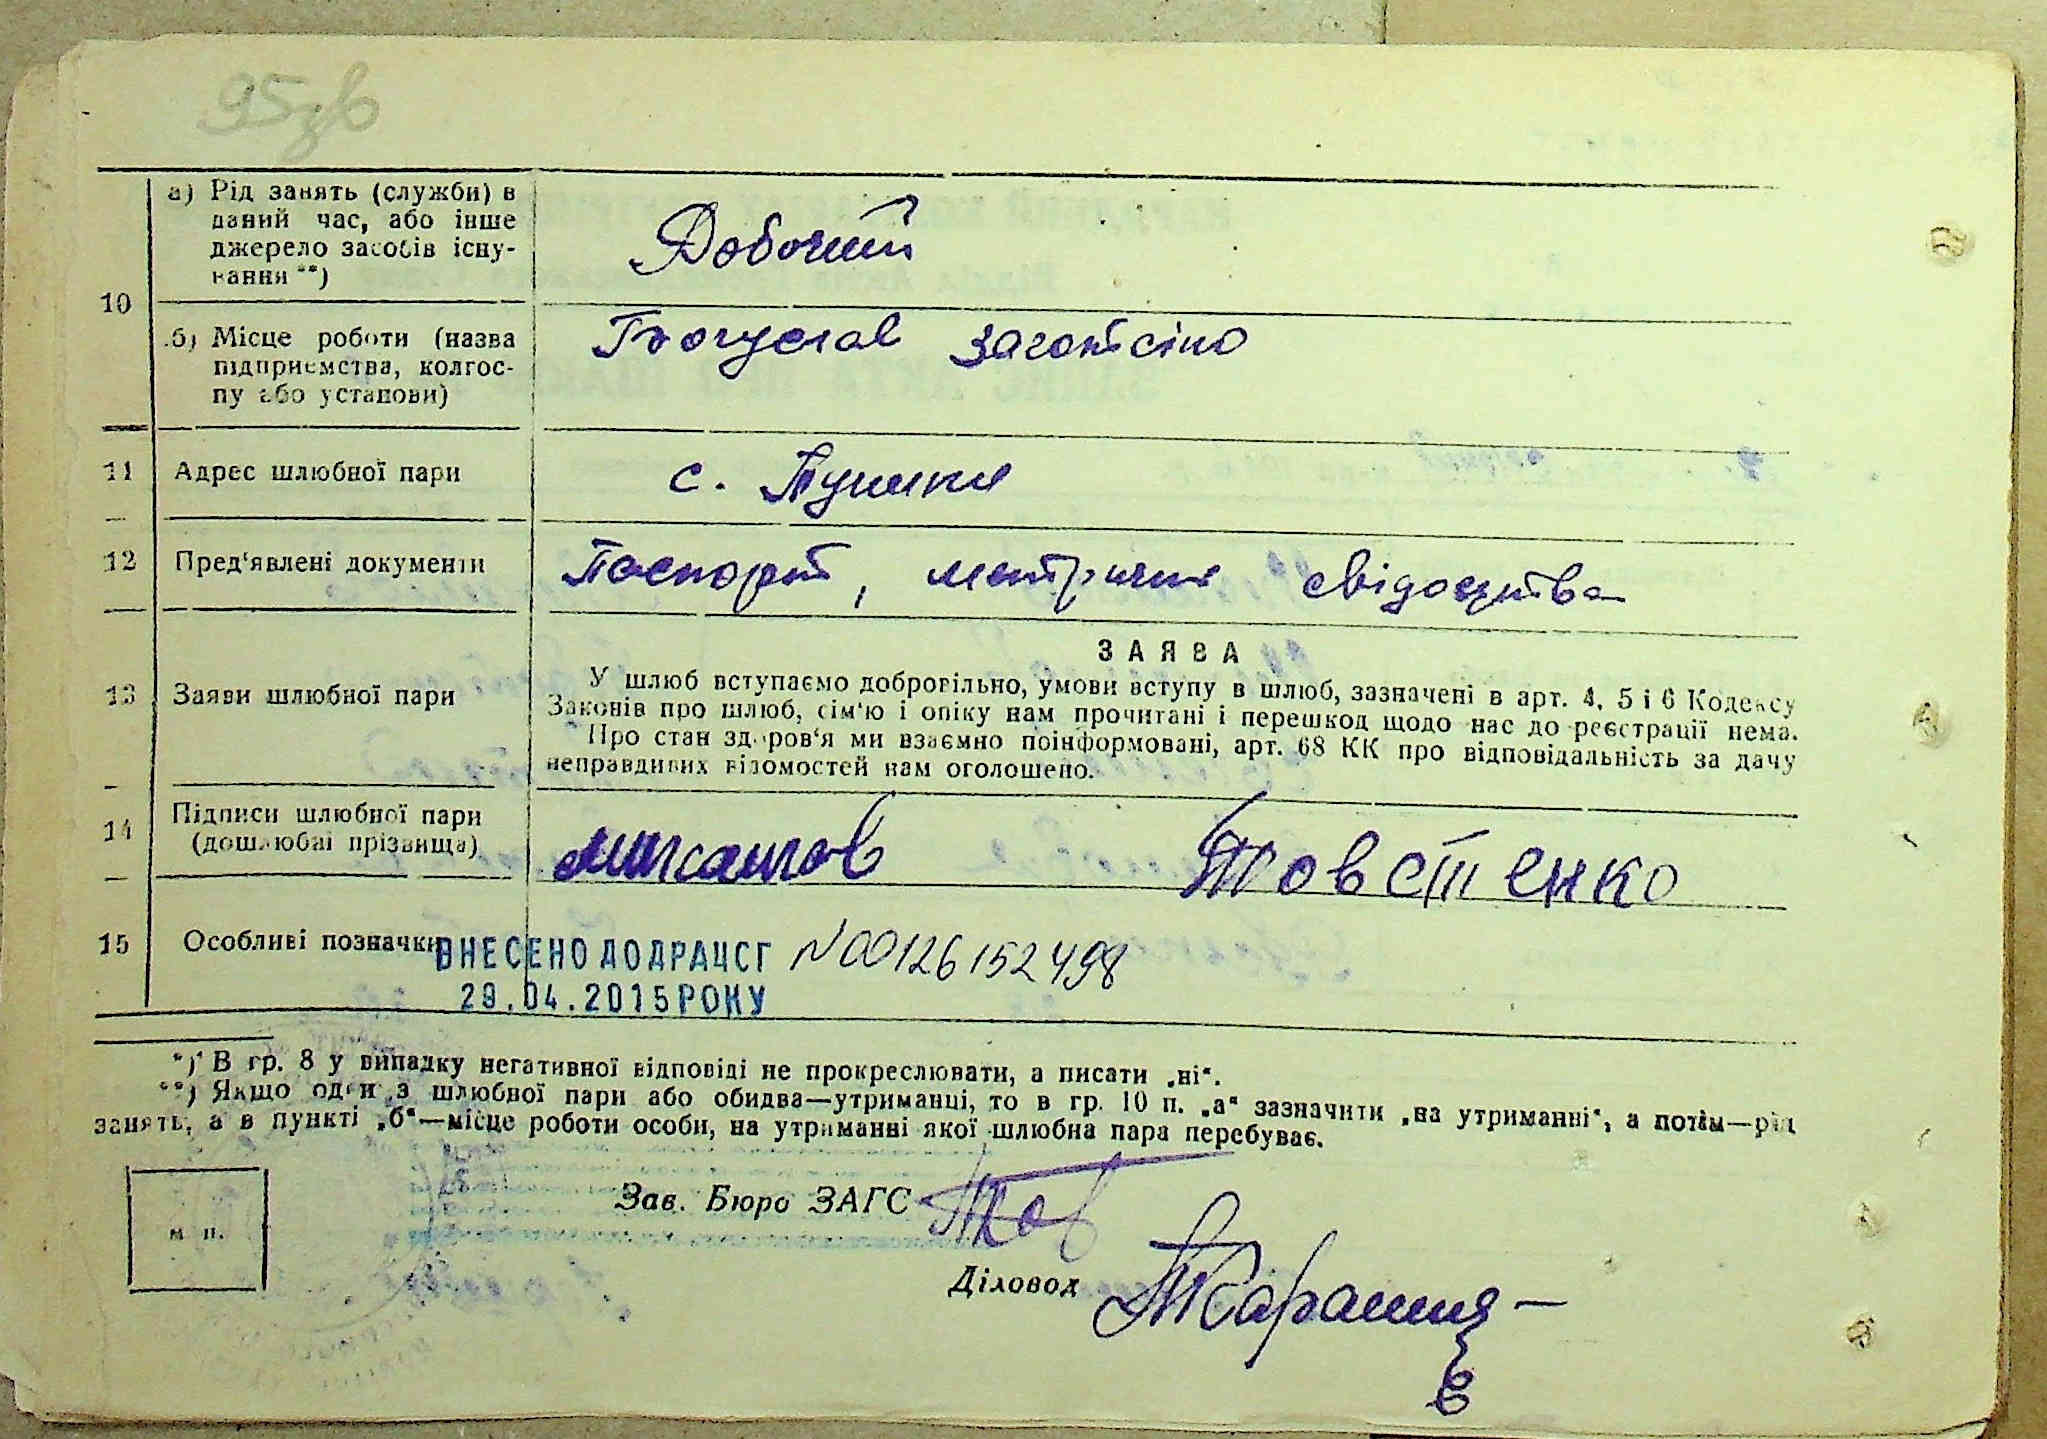 95зв
а) Рід занять (служби) в
даний час, або інше
джерело засобів існу-
вання **)
Робочий
10
б) Місце роботи (назва
підприємства, колгос-
пу або установи)
Богуслав заготсіно
11 Адрес шлюбної пари
с.
12 Пред'явлені документи
Паспорт, метричне свідоцтва
ЗАЯВА
13 Заяви шлюбної пари
У шлюб вступаємо добровільно, умови вступу в шлюб, зазначені в арт. 4, 5 і 6 Кодексу
Законів про шлюб, сім'ю і опіку нам прочитані і перешкод щодо нас до реєстрації нема.
Про стан здоров'я ми взаємно поінформовані, арт. 68 КК про відповідальність за дачу
неправдивих відомостей нам оголошено.
14 Підписи шлюбної пари
(дошлюбні прізвища)
Товстенко
15 Особливі позначки
ВНЕСЕНО ДО ДРАЦСГ N00126152498
29.04.2015 РОКУ
*) В гр. 8 у випадку негативної відповіді не прокреслювати, а писати „ні“.
**) Якщо один з шлюбної пари або обидва—утриманці, то в гр. 10 п. „а“ зазначити „на утриманні“, а потім—рід
занять, а в пункті „б“—місце роботи особи, на утриманні якої шлюбна пара перебуває.
м п.
Зав. Бюро ЗАГС
Діловод